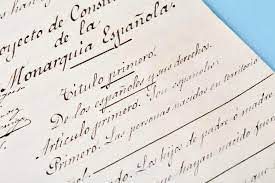 oyecto de Consti
de la
Monarquía Española.
Título primero.
De los españoles y sus derechos.
Artículo primero. Son españoles:
Primero. Las personas nacidas en territorio
Los hijos de padre ó madre
hayan nacido fuera